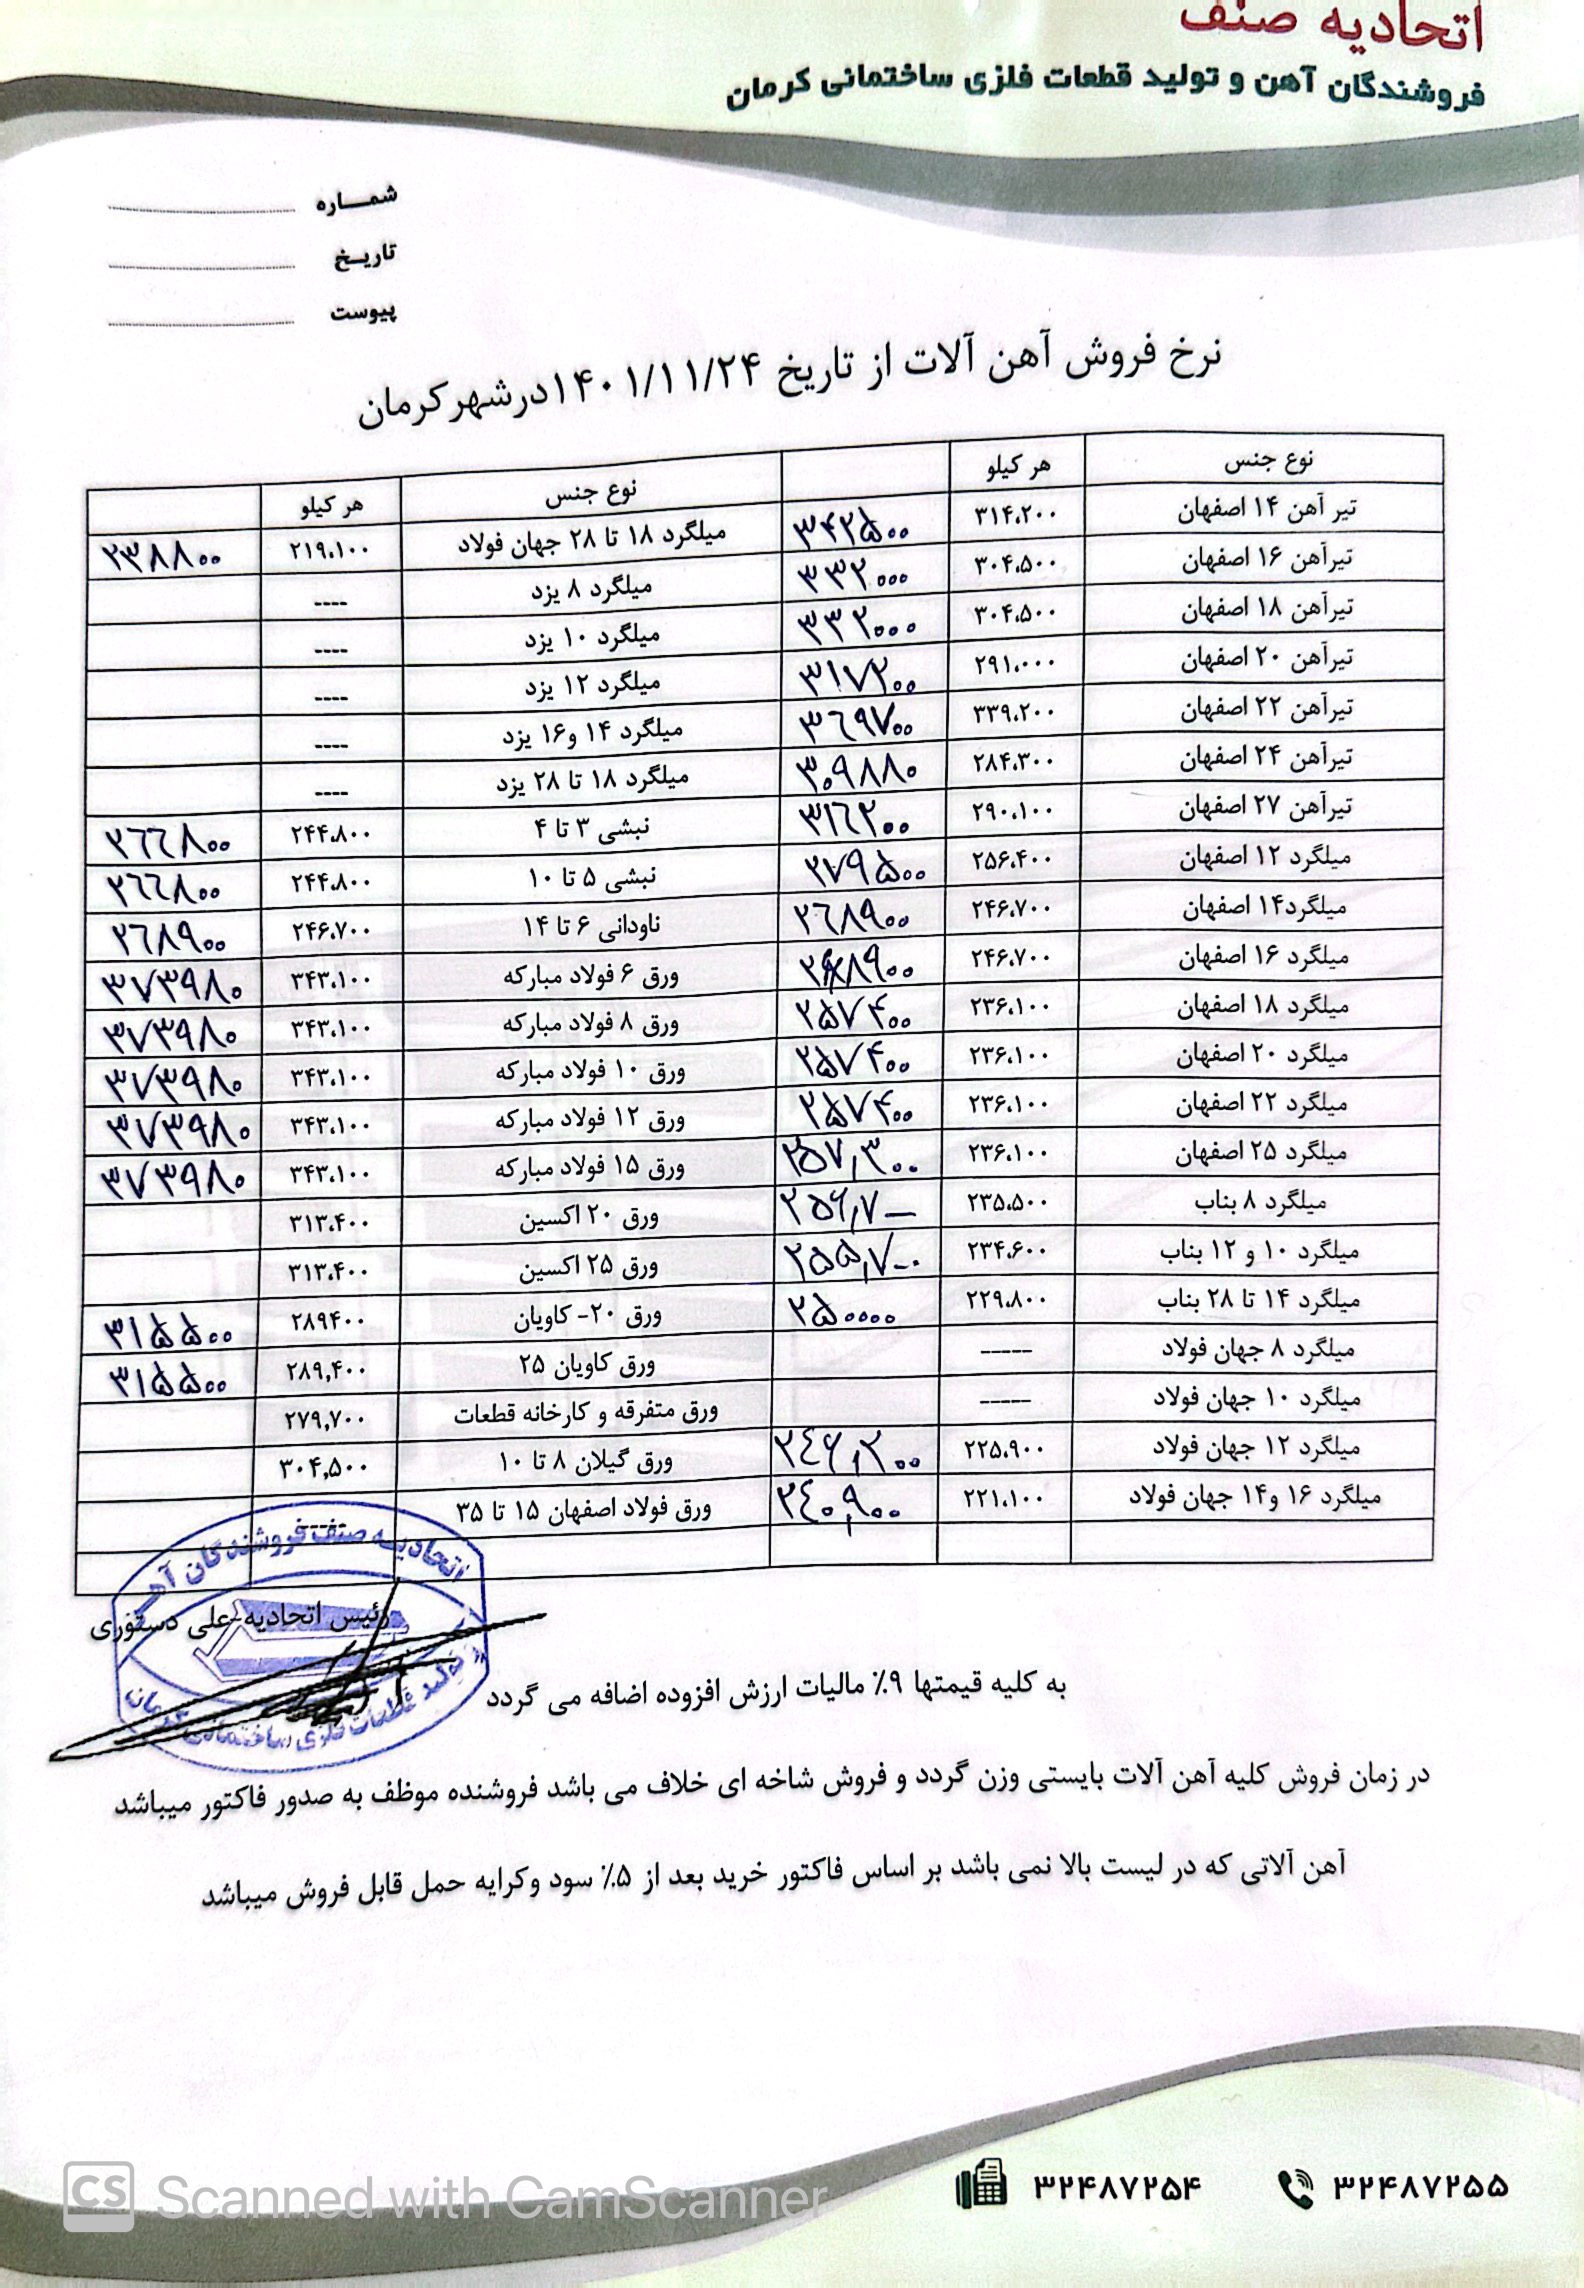 اتحادیه صنف
فروشندگان آهن و تولید قطعات فلزی ساختمانی کرمان
شمـــاره
تاریـخ
پیوست
نرخ فروش آهن آلات از تاریخ ۱۴۰۱/۱۱/۲۴درشهرکرمان
نوع جنس هر کیلو نوع جنس هر کیلو
تیر آهن ۱۴ اصفهان ۳۱۴،۲۰۰ ۳۴۲۵۰۰ میلگرد ۱۸ تا ۲۸ جهان فولاد ۲۱۹،۱۰۰ ۲۳۸۸۰۰
تیرآهن ۱۶ اصفهان ۳۰۴،۵۰۰ ۳۳۲۰۰۰ میلگرد ۸ یزد ----
تیرآهن ۱۸ اصفهان ۳۰۴،۵۰۰ ۳۳۲۰۰۰ میلگرد ۱۰ یزد ----
تیرآهن ۲۰ اصفهان ۲۹۱،۰۰۰ ۳۱۷۲۰۰ میلگرد ۱۲ یزد ----
تیرآهن ۲۲ اصفهان ۳۳۹،۲۰۰ ۳۶۹۷۰۰ میلگرد ۱۴ و۱۶ یزد ----
تیرآهن ۲۴ اصفهان ۲۸۴،۳۰۰ ۳۰۹۸۸۰ میلگرد ۱۸ تا ۲۸ یزد ----
تیرآهن ۲۷ اصفهان ۲۹۰،۱۰۰ ۳۱۶۲۰۰ نبشی ۳ تا ۴ ۲۴۴،۸۰۰ ۲۶۶۸۰۰
میلگرد ۱۲ اصفهان ۲۵۶،۴۰۰ ۲۷۹۵۰۰ نبشی ۵ تا ۱۰ ۲۴۴،۸۰۰ ۲۶۶۸۰۰
میلگرد۱۴ اصفهان ۲۴۶،۷۰۰ ۲۶۸۹۰۰ ناودانی ۶ تا ۱۴ ۲۴۶،۷۰۰ ۲۶۸۹۰۰
میلگرد ۱۶ اصفهان ۲۴۶،۷۰۰ ۲۶۸۹۰۰ ورق ۶ فولاد مبارکه ۳۴۳،۱۰۰ ۳۷۳۹۸۰
میلگرد ۱۸ اصفهان ۲۳۶،۱۰۰ ۲۵۷۴۰۰ ورق ۸ فولاد مبارکه ۳۴۳،۱۰۰ ۳۷۳۹۸۰
میلگرد ۲۰ اصفهان ۲۳۶،۱۰۰ ۲۵۷۴۰۰ ورق ۱۰ فولاد مبارکه ۳۴۳،۱۰۰ ۳۷۳۹۸۰
میلگرد ۲۲ اصفهان ۲۳۶،۱۰۰ ۲۵۷۴۰۰ ورق ۱۲ فولاد مبارکه ۳۴۳،۱۰۰ ۳۷۳۹۸۰
میلگرد ۲۵ اصفهان ۲۳۶،۱۰۰ ۲۵۷,۳۰۰ ورق ۱۵ فولاد مبارکه ۳۴۳،۱۰۰ ۳۷۳۹۸۰
میلگرد ۸ بناب ۲۳۵،۵۰۰ ۲۵۶,۷۰۰ ورق ۲۰ اکسین ۳۱۳،۴۰۰
میلگرد ۱۰ و ۱۲ بناب ۲۳۴،۶۰۰ ۲۵۵,۷۰۰ ورق ۲۵ اکسین ۳۱۳،۴۰۰
میلگرد ۱۴ تا ۲۸ بناب ۲۲۹،۸۰۰ ۲۵۰۰۰۰ ورق ۲۰- کاویان ۲۸۹۴۰۰ ۳۱۵۵۰۰
میلگرد ۸ جهان فولاد ----- ورق کاویان ۲۵ ۲۸۹,۴۰۰ ۳۱۵۵۰۰
میلگرد ۱۰ جهان فولاد ----- ورق متفرقه و کارخانه قطعات ۲۷۹,۷۰۰
میلگرد ۱۲ جهان فولاد ۲۲۵،۹۰۰ ۲۴۶,۲۰۰ ورق گیلان ۸ تا ۱۰ ۳۰۴,۵۰۰
میلگرد ۱۶ و۱۴ جهان فولاد ۲۲۱،۱۰۰ ۲۴۰,۹۰۰ ورق فولاد اصفهان ۱۵ تا ۳۵ -----
اتحادیـه صنف فروشندگان آهن
رئیس اتحادیه-علی دستوری
و تولید قطعات فلزی ساختمانی کرمان
به کلیه قیمتها ۹٪ مالیات ارزش افزوده اضافه می گردد
در زمان فروش کلیه آهن آلات بایستی وزن گردد و فروش شاخه ای خلاف می باشد فروشنده موظف به صدور فاکتور میباشد
آهن آلاتی که در لیست بالا نمی باشد بر اساس فاکتور خرید بعد از ۵٪ سود وکرایه حمل قابل فروش میباشد
۳۲۴۸۷۲۵۵ ۳۲۴۸۷۲۵۴
CS Scanned with CamScanner